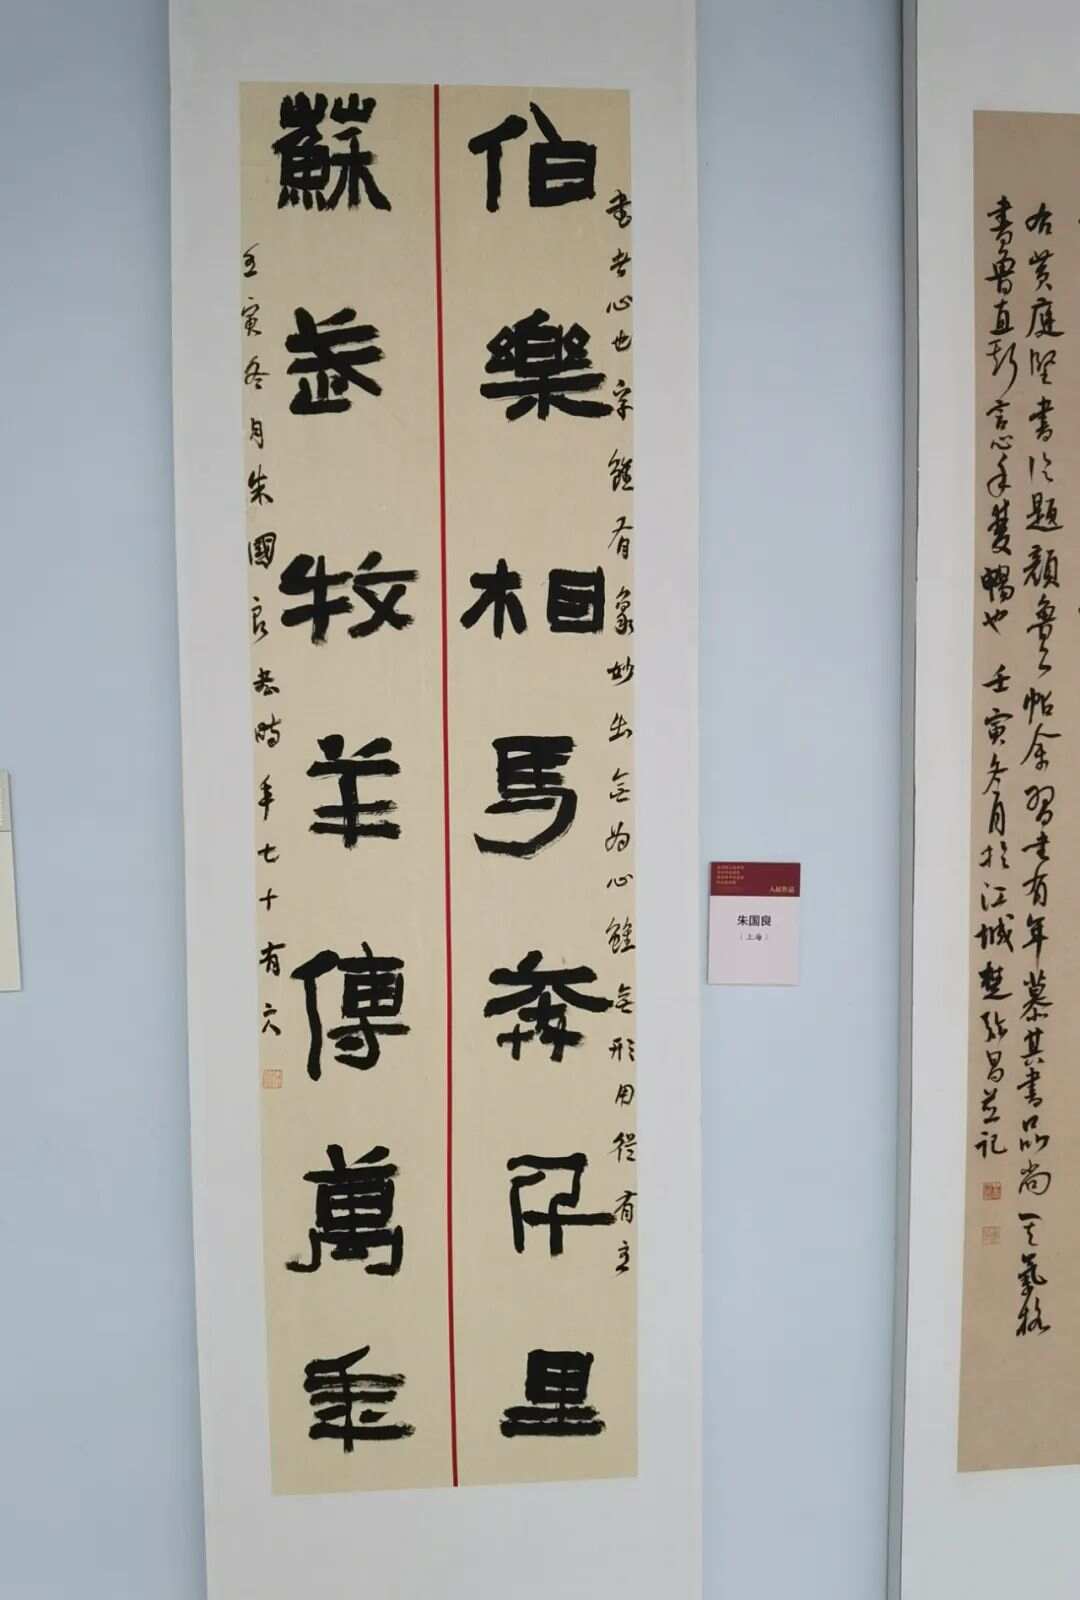 書者心也字雖有象妙出無為心雖無形用從有主
伯樂相馬奔千里
蘇武牧羊傳萬年
壬寅冬月朱國良書時年七十有六
入展作品
朱国良
（上海）
右黃庭堅書论題顏魯公帖余習書有年慕其書品尚其氣格
書魯直斯言心手雙暢也 壬寅冬月於江城 昌並记